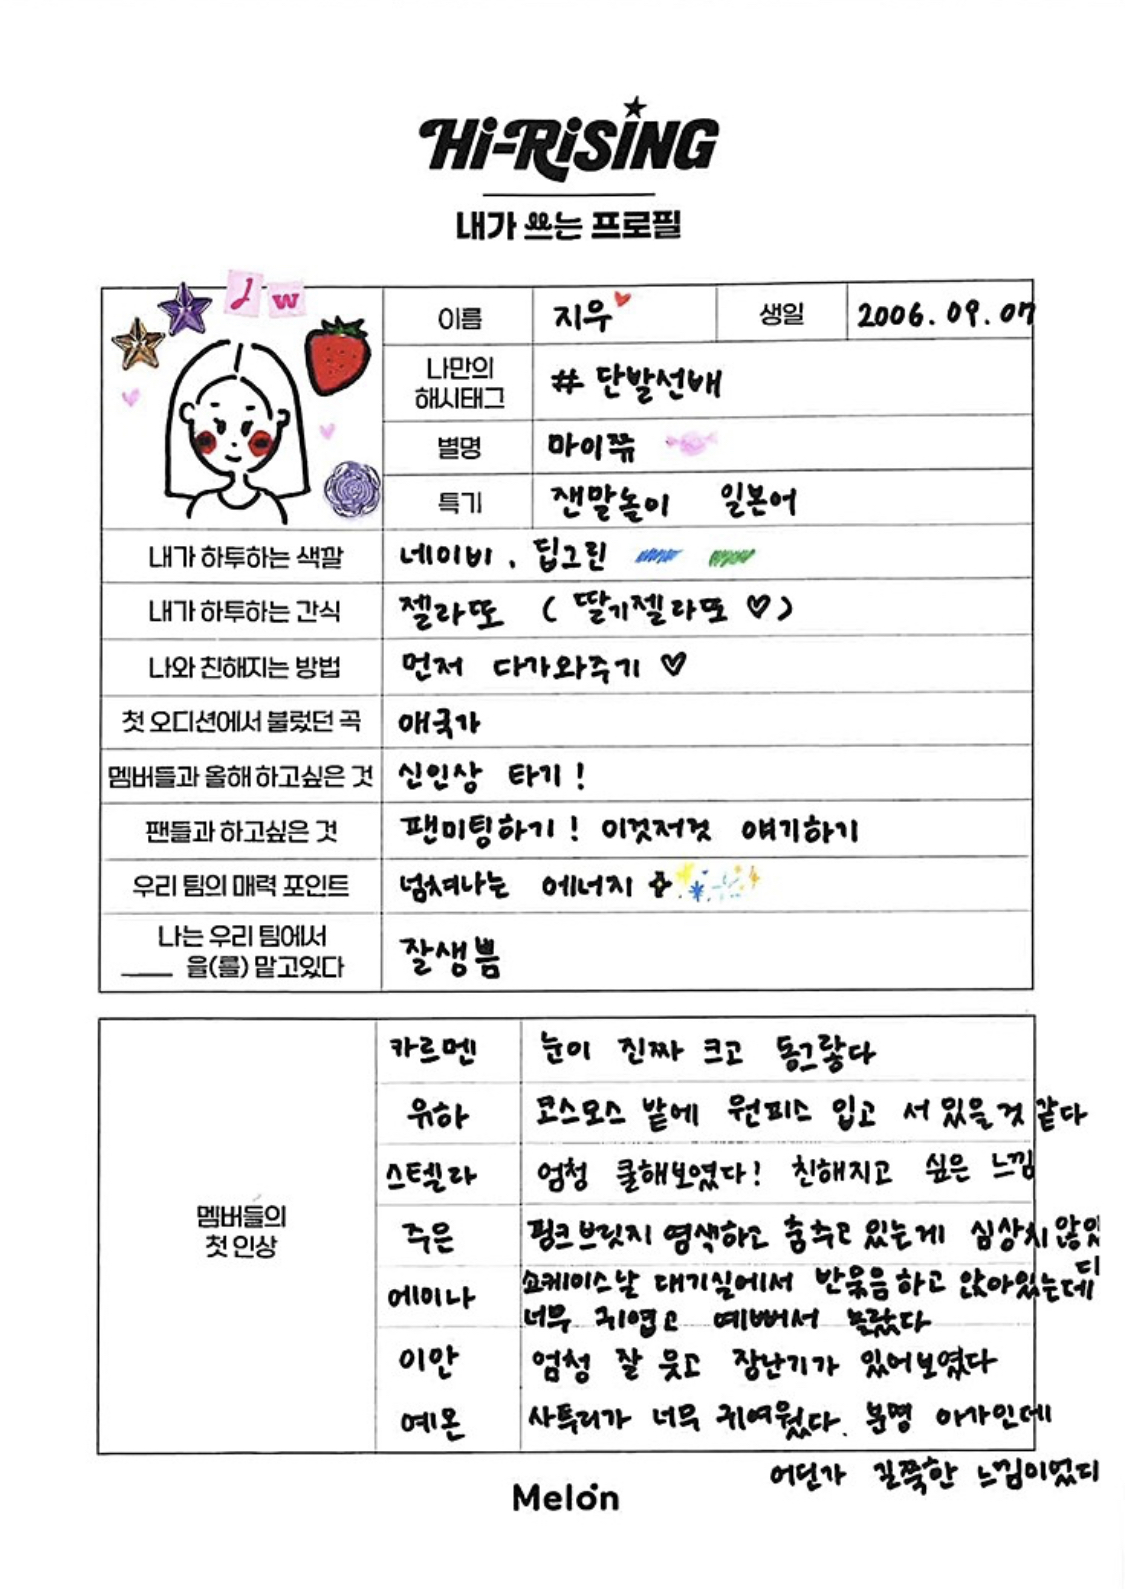 Hi-RiSiNG
내가 쓰는 프로필
J w
이름 지우 생일 2006.09.07
나만의
해시태그
# 단발선배
별명 마이쮸
특기 잰말놀이 일본어
내가 하투하는 색깔 네이비, 딥그린
내가 하투하는 간식 젤라또 (딸기젤라또 ♡)
나와 친해지는 방법 먼저 다가와주기 ♡
첫 오디션에서 불렀던 곡 애국가
멤버들과 올해 하고싶은 것 신인상 타기!
팬들과 하고싶은 것 팬미팅하기! 이것저것 얘기하기
우리 팀의 매력 포인트 넘쳐나는 에너지
나는 우리 팀에서
___ 을(를) 맡고있다
잘생쁨
멤버들의
첫 인상
카르멘 눈이 진짜 크고 동그랗다
유하 코스모스 밭에 원피스 입고 서 있을것 같다
스텔라 엄청 쿨해보였다! 친해지고 싶은 느낌
주은 핑크브릿지 염색하고 춤추고 있는게 심상치않았
다
에이나 쇼케이스날 대기실에서 반묶음하고 앉아있는데
너무 귀엽고 예뻐서 놀랐다
이안 엄청 잘 웃고 장난기가 있어보였다
예온 사투리가 너무 귀여웠다. 분명 아가인데
어딘가 길쭉한 느낌이었다
Melon